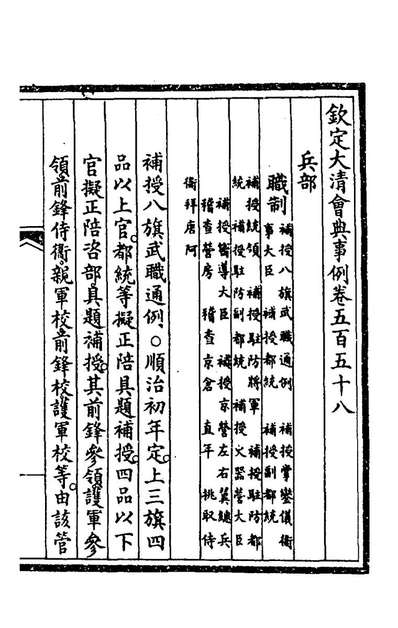 欽定大清會典事例卷五百五十八
兵部
職制
補授八旗武職通例 補授掌鑾儀衛
事大臣 補授都統 補授副都統
補授統領 補授駐防將軍 補授駐防都
統 補授駐防副都統 補授火器營大臣
補授嚮導大臣 補授京營左右翼總兵
稽查營房 稽查京倉 直年 挑取侍
衛拜唐阿
補授八旗武職通例○順治初年定上三旗四
品以上官都統等擬正陪具題補授四品以下
官擬正陪咨部具題補授其前鋒參領護軍參
領前鋒侍衛親軍校前鋒校護軍校等由該管